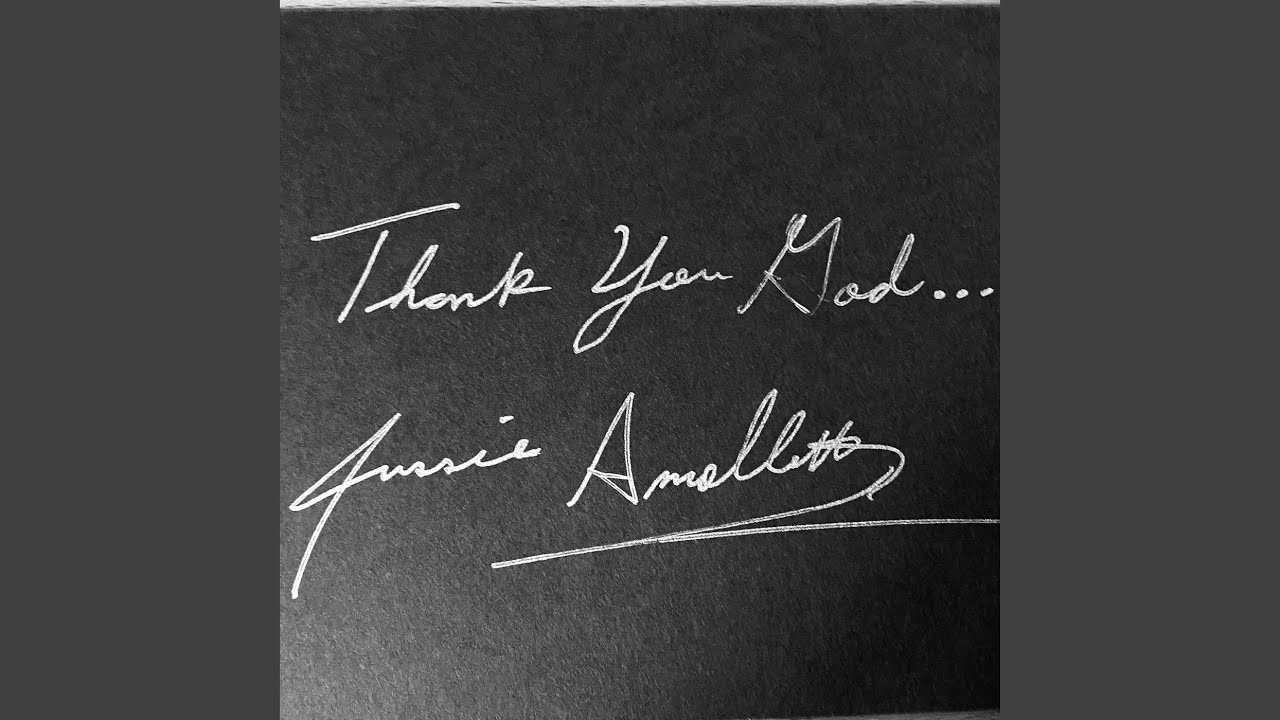 Thank You God...
Jussie Amollett